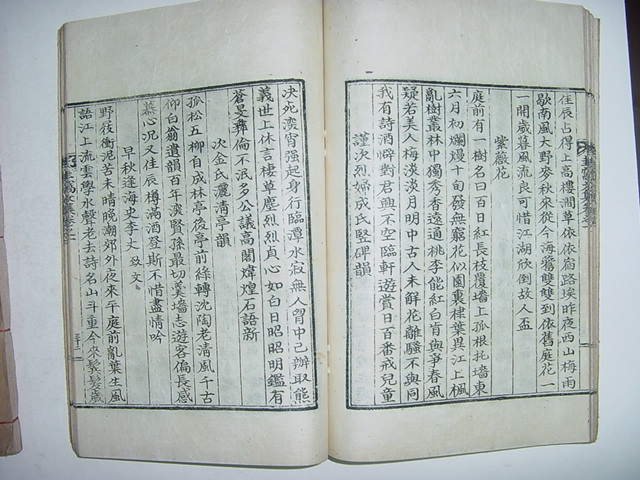 佳辰占得上高樓澗草依依崙路埃昨夜西山梅雨
歇南風大野麥秋來從今海鷰雙雙到依舊庭花一
一開歲暮風流良可惜江湖欣倒故人盃
紫薇花
庭前有一樹名曰百日紅長枝覆墻上孤根托墻東
六月初爛熳十旬發無窮花似園裏棣葉異江上楓
亂樹叢林中獨秀香遠通桃李能紅白肯與爭春風
疑若美人梅淡淡月明中古人未鮮花離騷不與同
我有詩酒癖對君興不空臨軒遊賞日百番戒兒童
謹次烈婦成氏竪碑韻
决死㢠宵强起身行臨潭水寂無人胷中己辦取熊
義世上休言棲草塵烈烈貞心如白日昭昭明鑑有
蒼旻彛倫不泯多公議高閣煒煌石語新
次金氏灑清亭韻
孤松五柳自成林亭後亭前絲轉沈陶老清風千古
仰白翁遺韻百年㴠賢孫最切羮墻志遊客偏長感
慕心况又佳辰樽滿酒登斯不惜盡情吟
早秋逢海史李丈致文
野筱衝泥苦未晴晩潮郊外夜來平庭前亂葉生風
語江上流雲學水聲老去詩名山斗重今來鬂髮歲